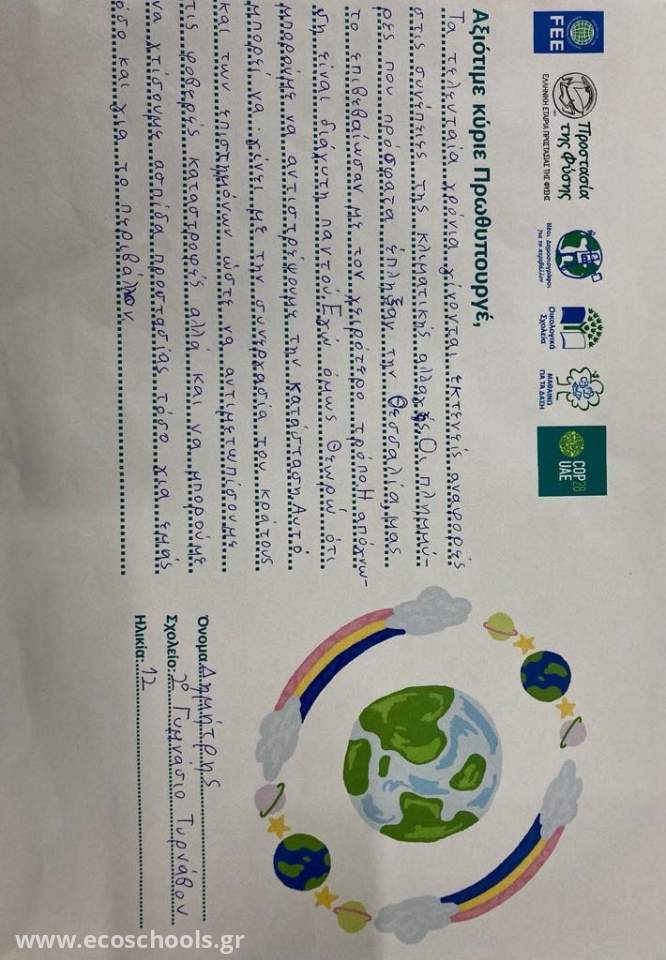 FEE
Προστασία
της Φύσης
ΕΛΛΗΝΙΚΗ ΕΤΑΙΡΙΑ ΠΡΟΣΤΑΣΙΑΣ ΤΗΣ ΦΥΣΗΣ
Νέοι Δημοσιογράφοι
για το περιβάλλον
Οικολογικά
Σχολεία
ΜΑΘΑΙΝΩ
ΓΙΑ ΤΑ ΔΑΣΗ
COP28
UAE
Αξιότιμε κύριε Πρωθυπουργέ,
Τα τελευταία χρόνια γίνονται εκτενείς αναφορές
στις συνέπειες της κλιματικής αλλαγής. Οι πλημμύ-
ρες που πρόσφατα έπληξαν την Θεσσαλία, μας
το επιβεβαίωσαν με τον χειρότερο τρόπο. Η απόγνω-
ση είναι διάχυτη παντού. Εγώ όμως θεωρώ ότι
μπορούμε να αντιστρέψουμε την κατάσταση. Αυτό
μπορεί να γίνει με την συνεργασία του κράτους
και των επιστημόνων ώστε να αντιμετωπίσουμε
τις φοβερές καταστροφές αλλά και να μπορούμε
να χτίσουμε ασπίδα προστασίας τόσο για εμάς
όσο και για το περιβάλλον
Όνομα: Δημήτρης
Σχολείο: 2ο Γυμνάσιο Τυρνάβου
Ηλικία: 12
www.ecoschools.gr